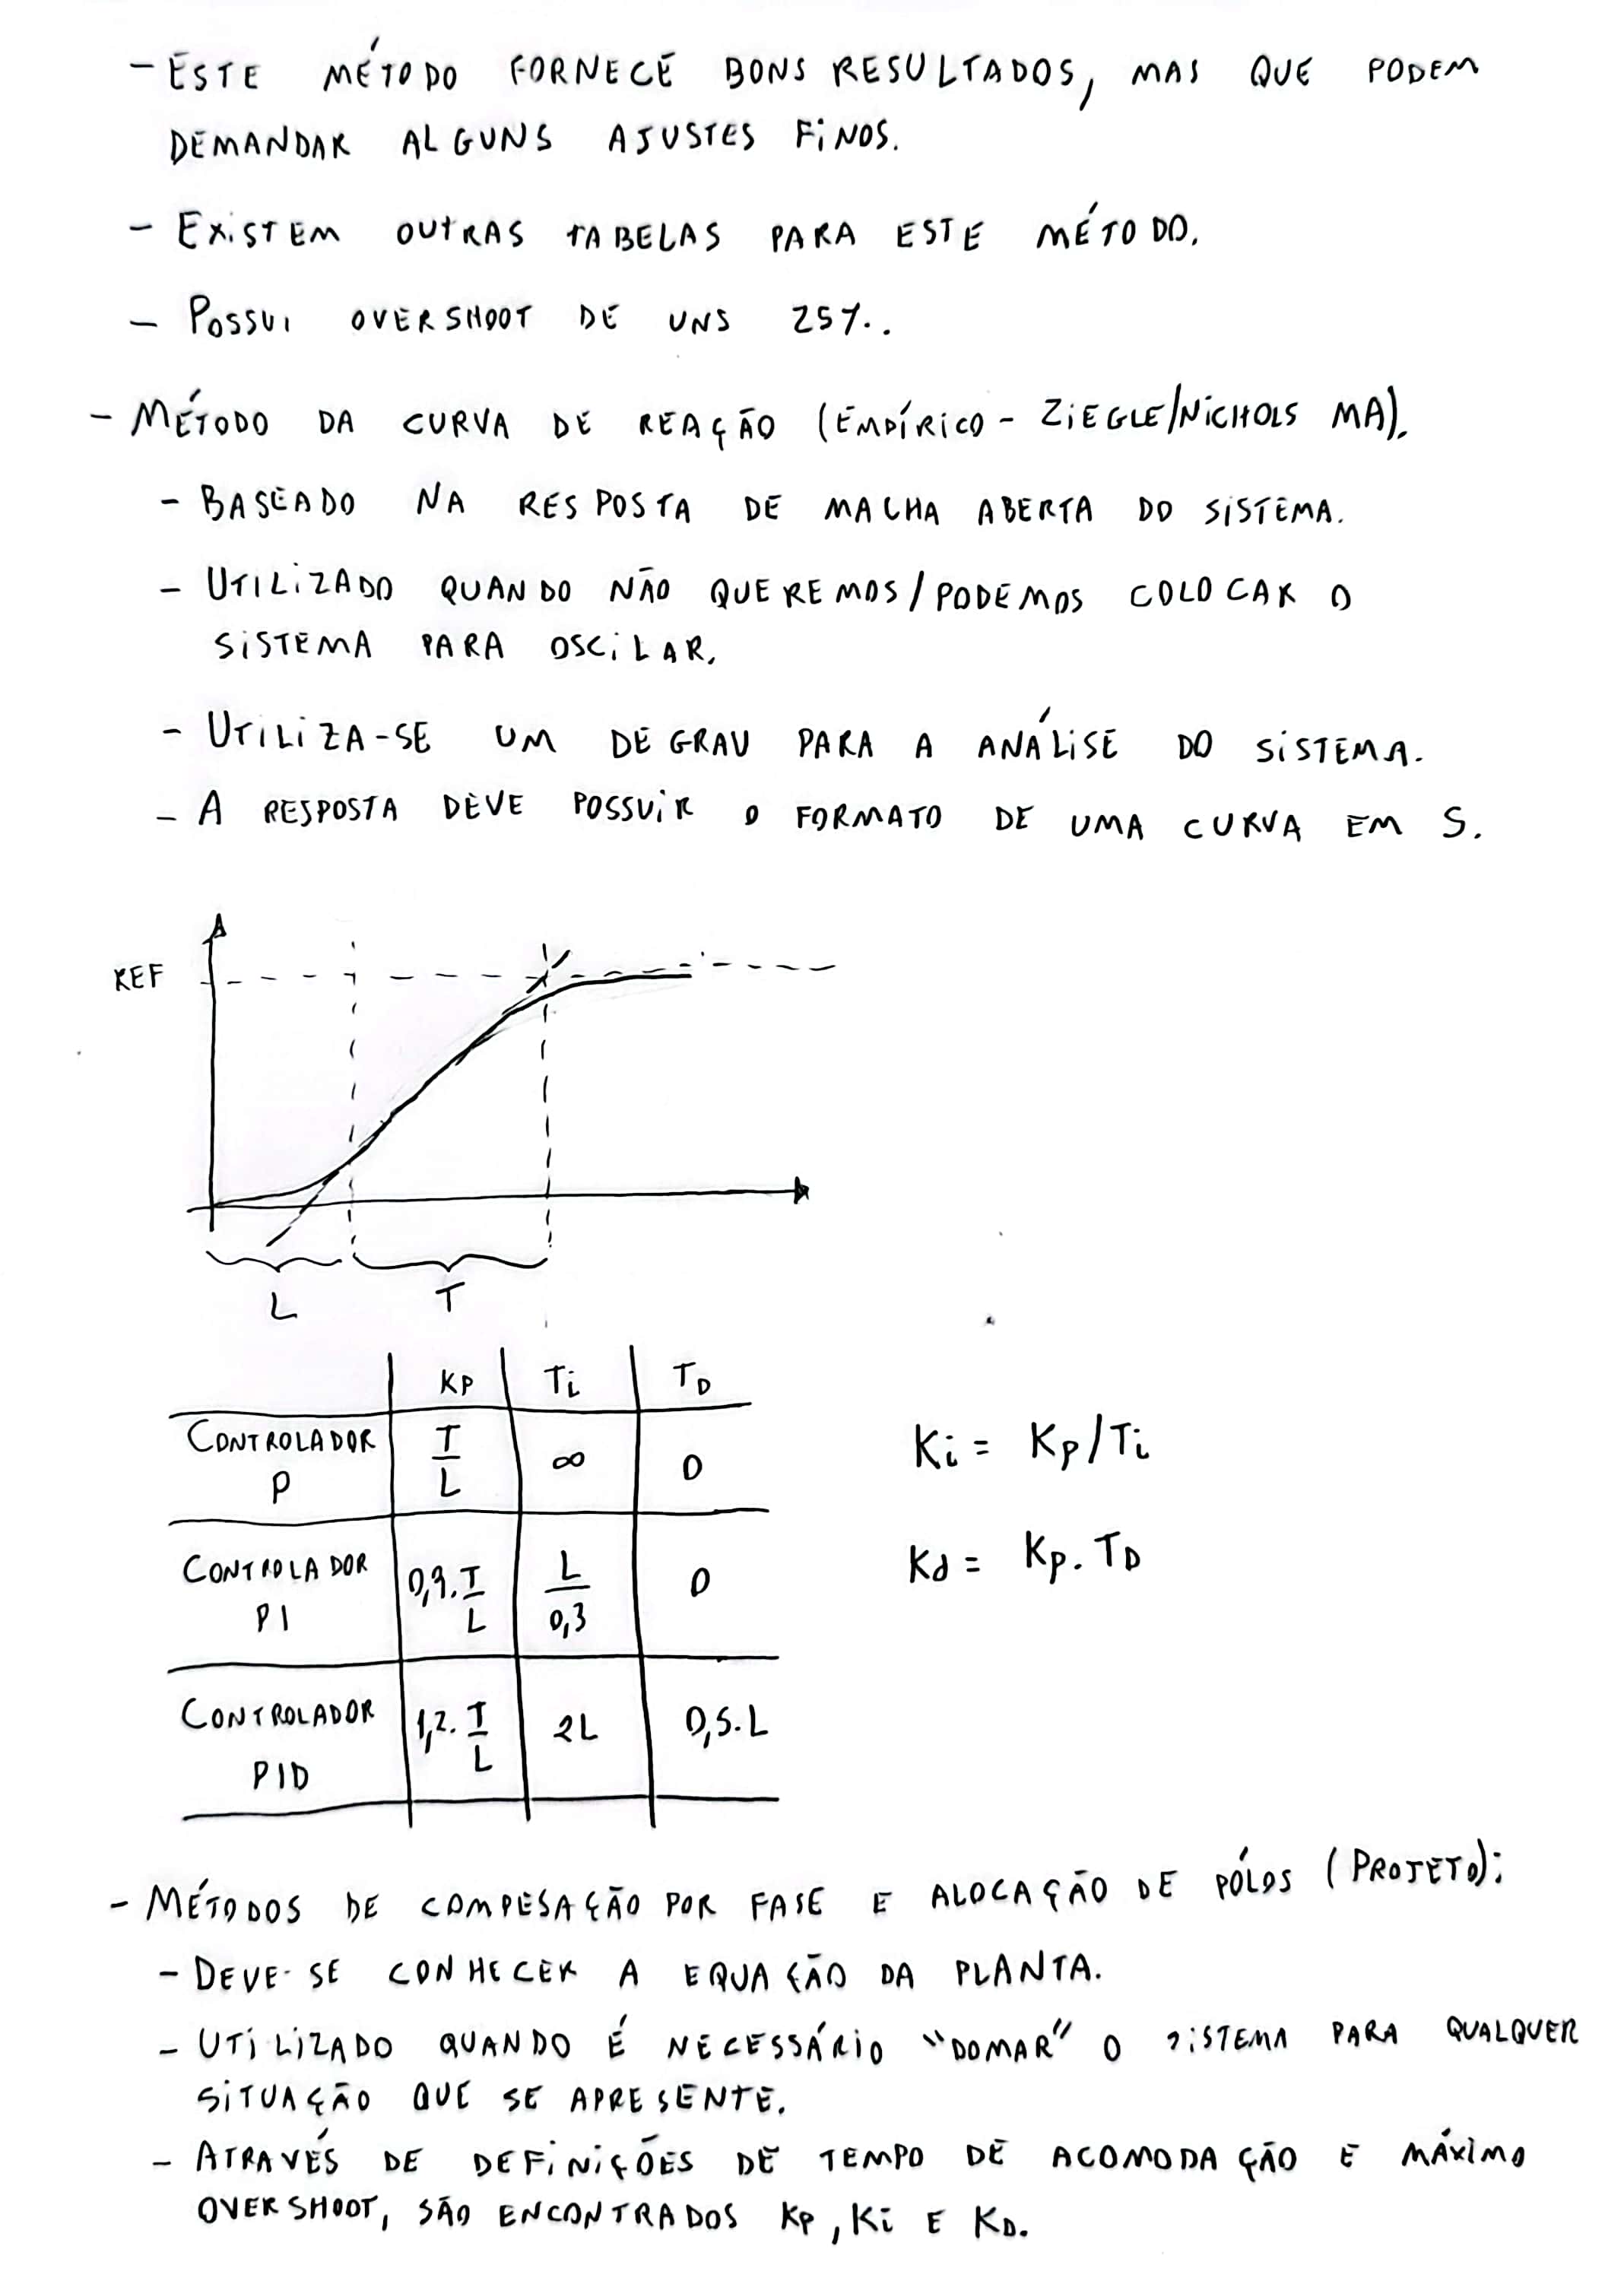 - ESTE MÉTODO FORNECE BONS RESULTADOS, MAS QUE PODEM
DEMANDAR ALGUNS AJUSTES FINOS.
- EXISTEM OUTRAS TABELAS PARA ESTE MÉTODO.
- POSSUI OVERSHOOT DE UNS 25%.
- MÉTODO DA CURVA DE REAÇÃO (EMPÍRICO - ZIEGLE/NICHOLS MA).
- BASEADO NA RESPOSTA DE MALHA ABERTA DO SISTEMA.
- UTILIZADO QUANDO NÃO QUEREMOS/PODEMOS COLOCAR O
SISTEMA PARA OSCILAR.
- UTILIZA-SE UM DEGRAU PARA A ANÁLISE DO SISTEMA.
- A RESPOSTA DEVE POSSUIR O FORMATO DE UMA CURVA EM S.
REF
L T
KP Ti TD
CONTROLADOR P T/L ∞ 0
Ki = Kp/Ti
CONTROLADOR PI 0,9.T/L L/0,3 0
Kd = Kp.TD
CONTROLADOR PID 1,2.T/L 2L 0,5.L
- MÉTODOS DE COMPESAÇÃO POR FASE E ALOCAÇÃO DE PÓLOS (PROJETO):
- DEVE-SE CONHECER A EQUAÇÃO DA PLANTA.
- UTILIZADO QUANDO É NECESSÁRIO "DOMAR" O SISTEMA PARA QUALQUER
SITUAÇÃO QUE SE APRESENTE.
- ATRAVÉS DE DEFINIÇÕES DE TEMPO DE ACOMODAÇÃO E MÁXIMO
OVERSHOOT, SÃO ENCONTRADOS KP, Ki E KD.